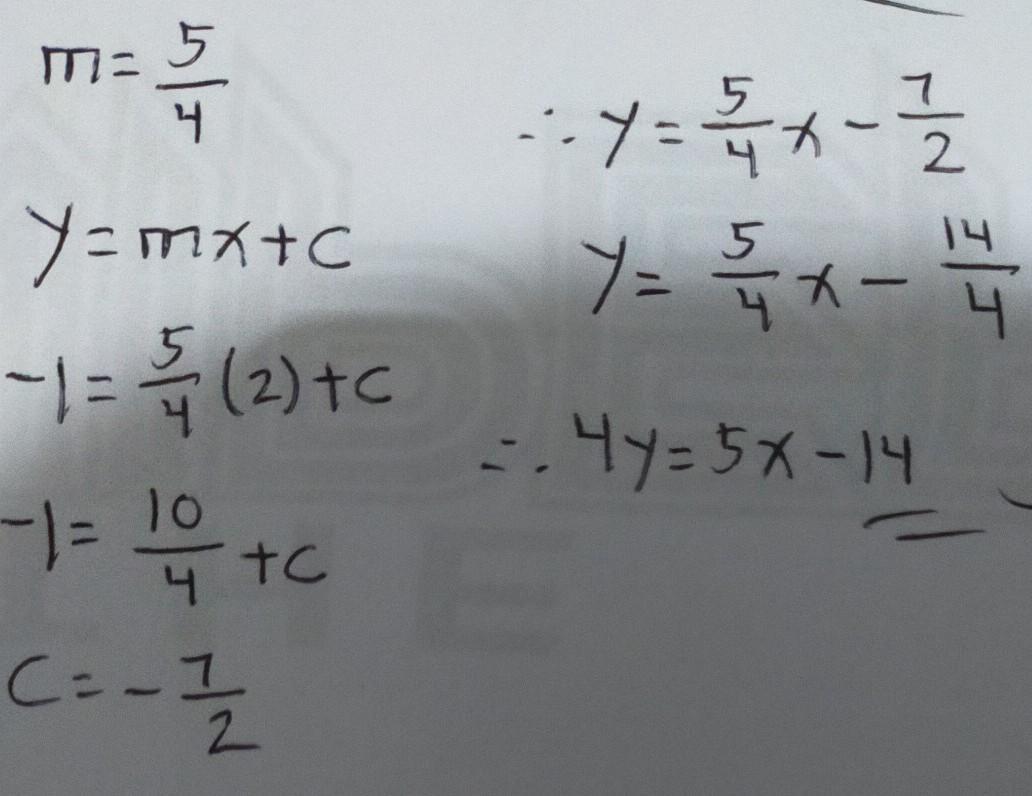 m = 5/4
y = mx + c
-1 = 5/4 (2) + c
-1 = 10/4 + c
c = - 7/2
∴ y = 5/4 x - 7/2
y = 5/4 x - 14/4
∴ 4y = 5x - 14